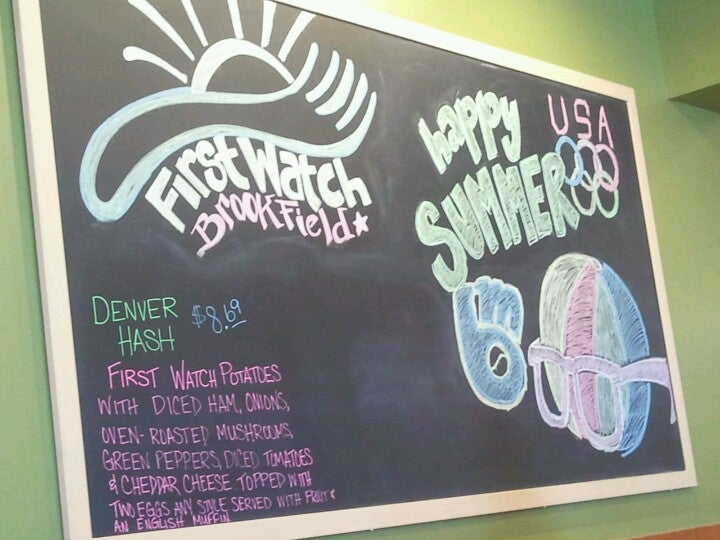 First Watch
BrookField
happy
SUMMER
USA
DENVER
HASH
$8.69
FIRST WATCH POTATOES
WITH DICED HAM, ONIONS,
OVEN-ROASTED MUSHROOMS,
GREEN PEPPERS, DICED TOMATOES
& CHEDDAR CHEESE TOPPED WITH
TWO EGGS ANY STYLE SERVED WITH FRUIT &
AN ENGLISH MUFFIN